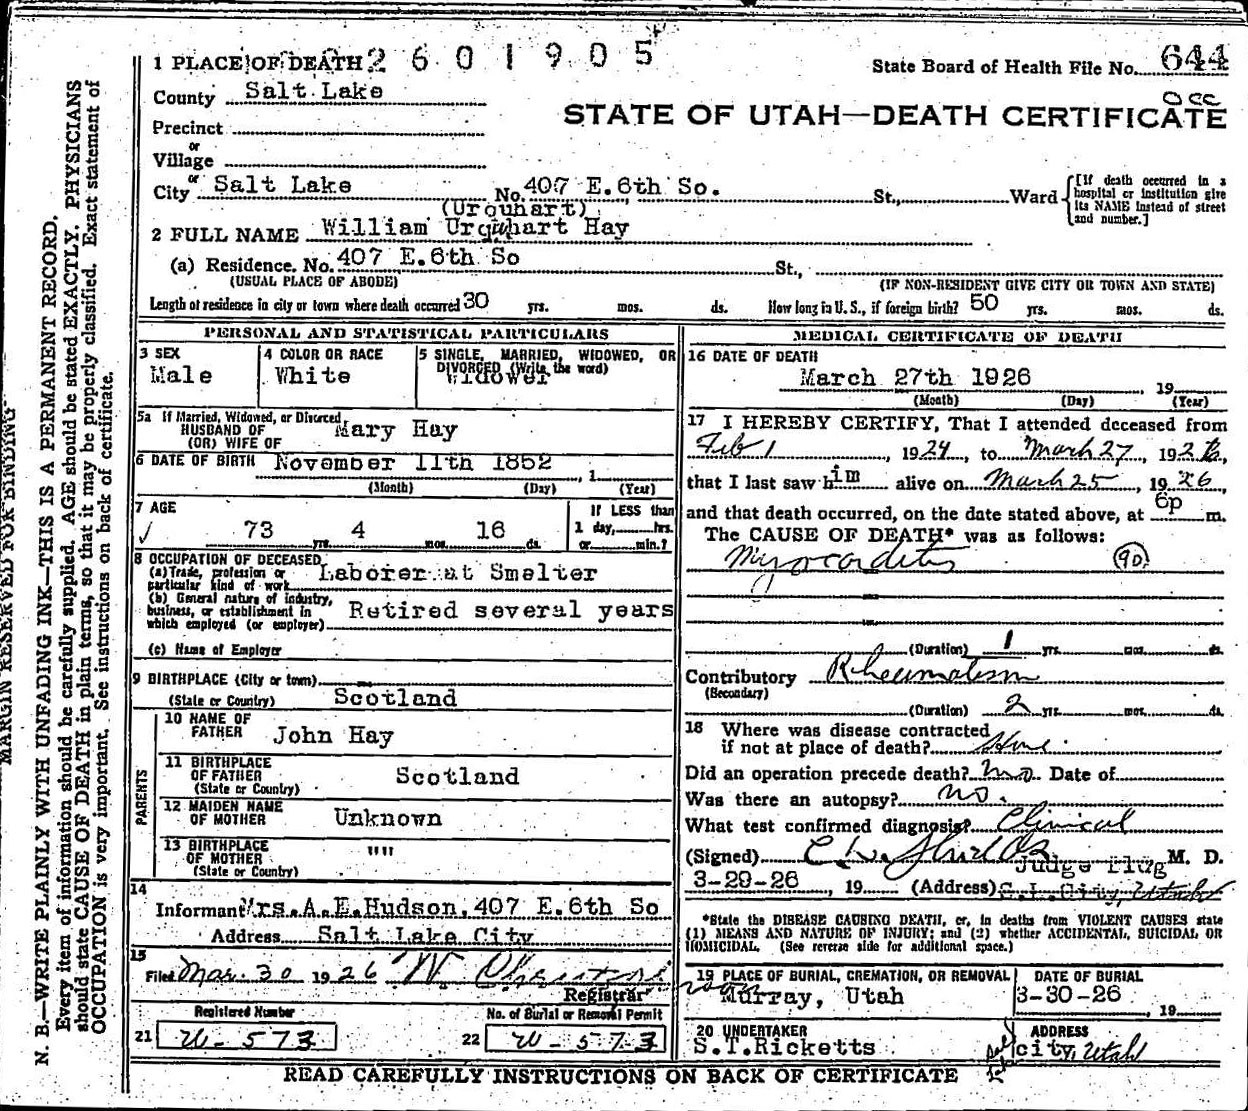 1 PLACE OF DEATH 2601905
State Board of Health File No. 644
County Salt Lake
Occ
STATE OF UTAH—DEATH CERTIFICATE
Precinct
or
Village
or
City Salt Lake No. 407 E.6th So. St., Ward [If death occurred in a hospital or institution give its NAME instead of street and number.]
(Urquhart)
2 FULL NAME William Urquhart Hay
(a) Residence. No. 407 E.6th So St.,
(USUAL PLACE OF ABODE) (IF NON-RESIDENT GIVE CITY OR TOWN AND STATE)
Length of residence in city or town where death occurred 30 yrs. mos. ds. How long in U. S., if foreign birth? 50 yrs. mos. ds.
PERSONAL AND STATISTICAL PARTICULARS
3 SEX
Male
4 COLOR OR RACE
White
5 SINGLE, MARRIED, WIDOWED, OR
DIVORCED (Write the word)
Widower
5a If Married, Widowed, or Divorced
HUSBAND OF
(OR) WIFE OF Mary Hay
6 DATE OF BIRTH November 11th 1852, 1
(Month) (Day) (Year)
7 AGE
73 yrs. 4 mos. 16 ds.
If LESS than
1 day, hrs.
or min.?
8 OCCUPATION OF DECEASED
(a) Trade, profession or
particular kind of work Laborer at Smelter
(b) General nature of industry,
business, or establishment in
which employed (or employer) Retired several years
(c) Name of Employer
9 BIRTHPLACE (City or town)
(State or Country) Scotland
PARENTS
10 NAME OF
FATHER John Hay
11 BIRTHPLACE
OF FATHER
(State or Country) Scotland
12 MAIDEN NAME
OF MOTHER Unknown
13 BIRTHPLACE
OF MOTHER
(State or Country) """"
14
Informant Mrs.A.E.Hudson,407 E.6th So
Address Salt Lake City
15
Filed Mar. 30 1926 W.
Registrar
Registered Number No. of Burial or Removal Permit
21 W-573 22 W-573
MEDICAL CERTIFICATE OF DEATH
16 DATE OF DEATH
March 27th 1926 19
(Month) (Day) (Year)
17 I HEREBY CERTIFY, That I attended deceased from
Feb 1, 1924, to March 27, 1926,
that I last saw him alive on March 25, 1926,
and that death occurred, on the date stated above, at 6p m.
The CAUSE OF DEATH* was as follows:
Myocarditis (90)
(Duration) 1 yrs. mos. ds.
Contributory Rheumatism
(Secondary)
(Duration) 2 yrs. mos. ds.
18 Where was disease contracted
if not at place of death? Home
Did an operation precede death? no Date of
Was there an autopsy? no.
What test confirmed diagnosis? Clinical
(Signed) M. D.
Judge Bldg
3-29-26, 19 (Address) S.L.City, Utah
*State the DISEASE CAUSING DEATH, or, in deaths from VIOLENT CAUSES state
(1) MEANS AND NATURE OF INJURY; and (2) whether ACCIDENTAL, SUICIDAL OR
HOMICIDAL. (See reverse side for additional space.)
19 PLACE OF BURIAL, CREMATION, OR REMOVAL
Murray, Utah
DATE OF BURIAL
3-30-26, 19
20 UNDERTAKER
S.T.Ricketts
ADDRESS
Salt Lake city, Utah
READ CAREFULLY INSTRUCTIONS ON BACK OF CERTIFICATE
MARGIN RESERVED FOR BINDING
N. B.—WRITE PLAINLY WITH UNFADING INK—THIS IS A PERMANENT RECORD.
Every item of information should be carefully supplied. AGE should be stated EXACTLY. PHYSICIANS
should state CAUSE OF DEATH in plain terms, so that it may be properly classified. Exact statement of
OCCUPATION is very important. See instructions on back of certificate.